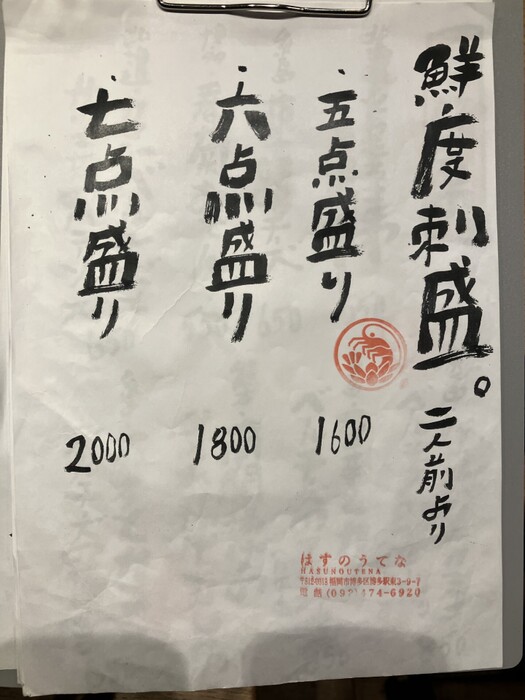 鮮度刺盛。 二人前より
・五点盛り 1600
・六点盛り 1800
・七点盛り 2000
はすのうてな
HASUNOUTENA
福岡市博多区博多駅東3-9-7
電話(092)474-6920